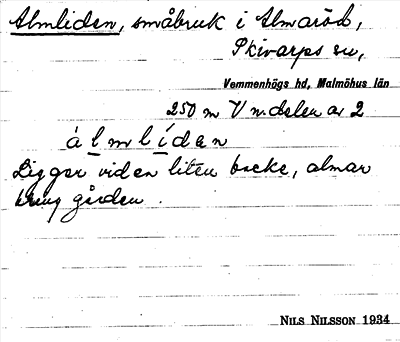 Almliden, småbruk i Almaröd,
Skivarps sn,
Vemmenhögs hd, Malmöhus län
250 m V m. delen av 2
álmlíden
Ligger vid en liten backe, almar
kring gården.
NILS NILSSON 1934